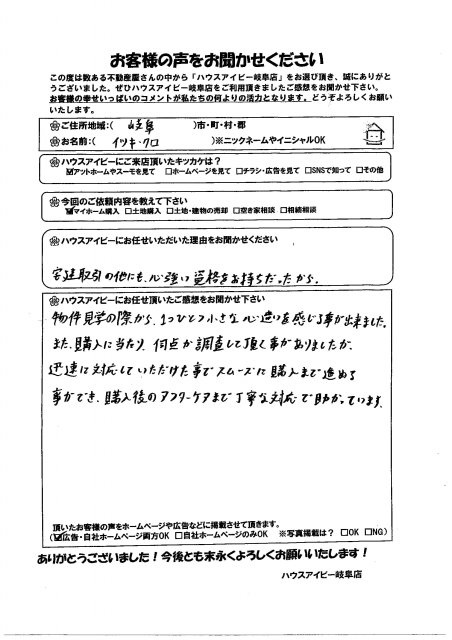 お客様の声をお聞かせください
この度は数ある不動産屋さんの中から「ハウスアイビー岐阜店」をお選び頂き、誠にありがと
うございました。ぜひハウスアイビー岐阜店をご利用頂きましたご感想をお聞かせ下さい。
お客様の幸せいっぱいのコメントが私たちの何よりの活力となります。どうぞよろしくお願い
いたします。
ご住所地域:( 岐阜 )市・町・村・郡
お名前:( イツキ・クロ )※ニックネームやイニシャルOK
ハウスアイビーにご来店頂いたキッカケは?
☑アットホームやスーモを見て □ホームページを見て □チラシ・広告を見て □SNSで知って □その他
今回のご依頼内容を教えて下さい
☑マイホーム購入 □土地購入 □土地・建物の売却 □空き家相談 □相続相談
ハウスアイビーにお任せいただいた理由をお聞かせください
宅建取引の他にも、心強い資格をお持ちだったから。
ハウスアイビーにお任せ頂いたご感想をお聞かせ下さい
物件見学の際から、1つひとつ小さな心遣いを感じる事が出来ました。
また、購入に当たり、何点か調査して頂く事がありましたが、
迅速に対応していただけた事でスムーズに購入まで進める
事ができ、購入後のアフターケアまで丁寧な対応で助かっています。
頂いたお客様の声をホームページや広告などに掲載させて頂きます。
(☑広告・自社ホームページ両方OK □自社ホームページのみOK ※写真掲載は? □OK □NG)
ありがとうございました!今後とも末永くよろしくお願いいたします!
ハウスアイビー岐阜店